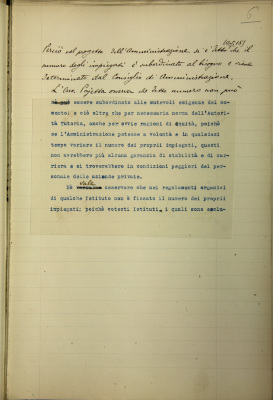 6
Perciò nel progetto dell'Amministrazione si è detto che il
numero degli impiegati è subordinato al bisogno e viene
determinato dal Consiglio di Amministrazione.
L'On. Pojetta osserva che detto numero non può
essere subordinato alle mutevoli esigenze del mo-
mento; e ciò oltre che per necessaria norma dell'Autori-
tà Tutoria, anche per ovvie ragioni di equità, poichè
se l'Amministrazione potesse a volontà e in qualsiasi
tempo variare il numero dei proprii impiegati, questi
non avrebbero più alcuna garanzia di stabilità e di car-
riera e si troverebbero in condizioni peggiori del per-
sonale delle aziende private.
Nè vale osservare che nei regolamenti organici
di qualche Istituto non è fissato il numero dei proprii
impiegati; poichè cotesti Istituti, i quali sono esclu-